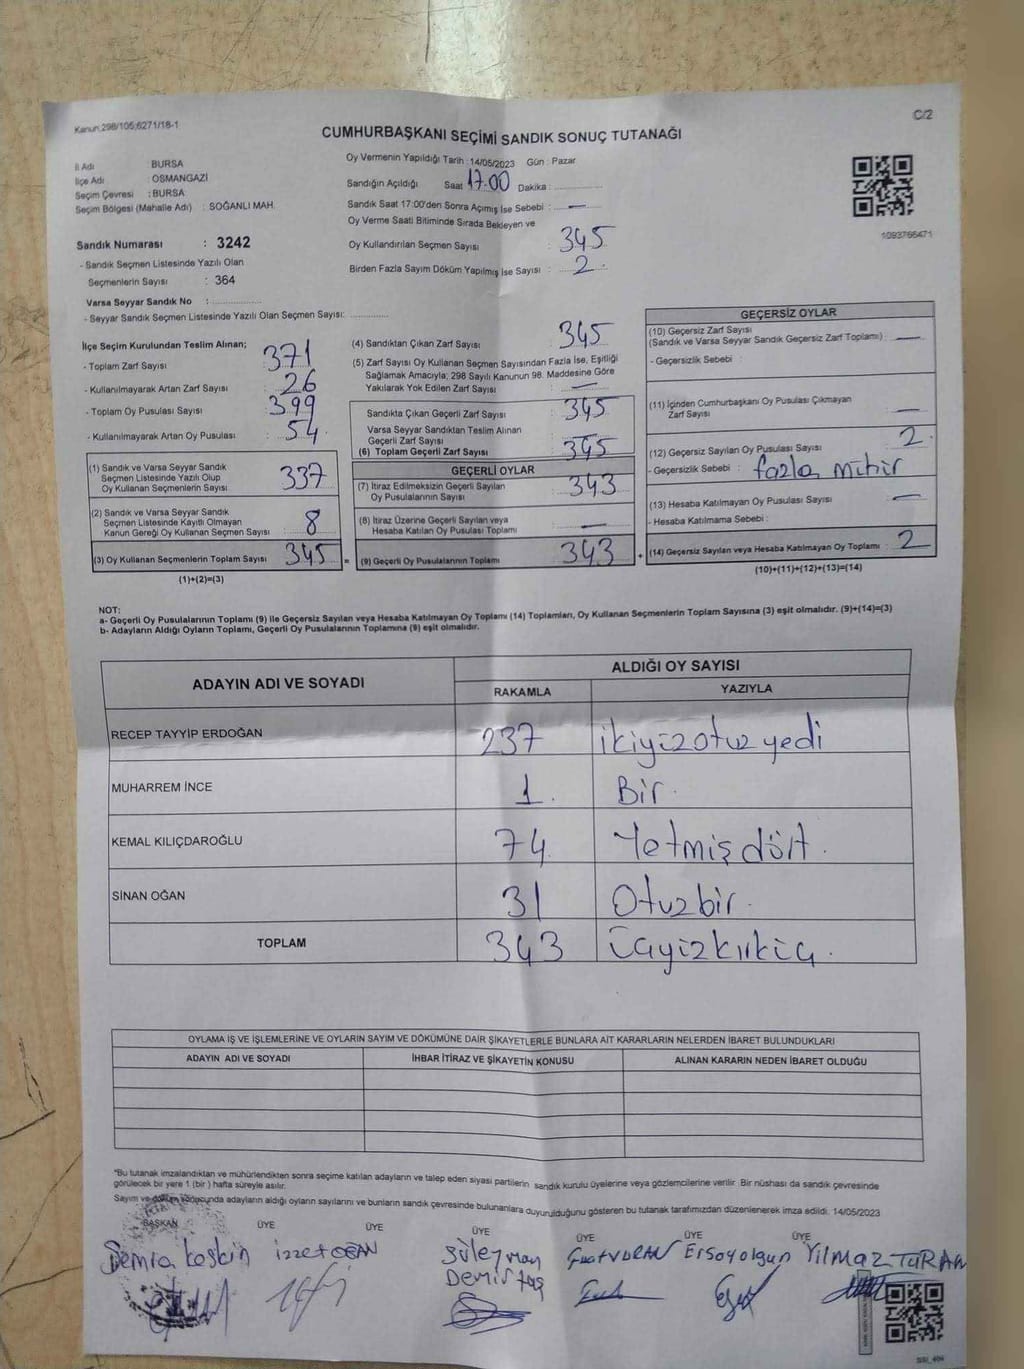 Kanun:298/105;6271/18-1
C/2
CUMHURBAŞKANI SEÇİMİ SANDIK SONUÇ TUTANAĞI
İl Adı : BURSA
İlçe Adı : OSMANGAZİ
Seçim Çevresi : BURSA
Seçim Bölgesi (Mahalle Adı) : SOĞANLI MAH.
Sandık Numarası : 3242
- Sandık Seçmen Listesinde Yazılı Olan
Seçmenlerin Sayısı : 364
Varsa Seyyar Sandık No :
- Seyyar Sandık Seçmen Listesinde Yazılı Olan Seçmen Sayısı:
Oy Vermenin Yapıldığı Tarih :14/05/2023 Gün : Pazar
Sandığın Açıldığı Saat 17.00 Dakika :
Sandık Saat 17:00'den Sonra Açımış İse Sebebi : —
Oy Verme Saati Bitiminde Sırada Bekleyen ve
Oy Kullandırılan Seçmen Sayısı : 345
Birden Fazla Sayım Döküm Yapılmış İse Sayısı : 2.
1093766471
İlçe Seçim Kurulundan Teslim Alınan;
- Toplam Zarf Sayısı : 371
- Kullanılmayarak Artan Zarf Sayısı : 26
- Toplam Oy Pusulası Sayısı : 399
- Kullanılmayarak Artan Oy Pusulası : 54
(1) Sandık ve Varsa Seyyar Sandık
Seçmen Listesinde Yazılı Olup
Oy Kullanan Seçmenlerin Sayısı : 337
(2) Sandık ve Varsa Seyyar Sandık
Seçmen Listesinde Kayıtlı Olmayan
Kanun Gereği Oy Kullanan Seçmen Sayısı : 8
(3) Oy Kullanan Seçmenlerin Toplam Sayısı : 345
(1)+(2)=(3)
(4) Sandıktan Çıkan Zarf Sayısı : 345
(5) Zarf Sayısı Oy Kullanan Seçmen Sayısından Fazla İse, Eşitliği
Sağlamak Amacıyla; 298 Sayılı Kanunun 98. Maddesine Göre
Yakılarak Yok Edilen Zarf Sayısı : —
Sandıkta Çıkan Geçerli Zarf Sayısı : 345
Varsa Seyyar Sandıktan Teslim Alınan
Geçerli Zarf Sayısı :
(6) Toplam Geçerli Zarf Sayısı : 345
GEÇERLİ OYLAR
(7) İtiraz Edilmeksizin Geçerli Sayılan
Oy Pusulalarının Sayısı : 343
(8) İtiraz Üzerine Geçerli Sayılan veya
Hesaba Katılan Oy Pusulası Toplamı : —
(9) Geçerli Oy Pusulalarının Toplamı : 343
GEÇERSİZ OYLAR
(10) Geçersiz Zarf Sayısı
(Sandık ve Varsa Seyyar Sandık Geçersiz Zarf Toplamı) : —
- Geçersizlik Sebebi :
(11) İçinden Cumhurbaşkanı Oy Pusulası Çıkmayan
Zarf Sayısı : —
(12) Geçersiz Sayılan Oy Pusulası Sayısı : 2.
- Geçersizlik Sebebi : fazla mühür
(13) Hesaba Katılmayan Oy Pusulası Sayısı : —
- Hesaba Katılmama Sebebi :
(14) Geçersiz Sayılan veya Hesaba Katılmayan Oy Toplamı : 2
(10)+(11)+(12)+(13)=(14)
NOT:
a- Geçerli Oy Pusulalarının Toplamı (9) ile Geçersiz Sayılan veya Hesaba Katılmayan Oy Toplamı (14) Toplamları, Oy Kullanan Seçmenlerin Toplam Sayısına (3) eşit olmalıdır. (9)+(14)=(3)
b- Adayların Aldığı Oyların Toplamı, Geçerli Oy Pusulalarının Toplamına (9) eşit olmalıdır.
ADAYIN ADI VE SOYADI
ALDIĞI OY SAYISI
RAKAMLA YAZIYLA
RECEP TAYYİP ERDOĞAN 237 ikiyüzotuzyedi
MUHARREM İNCE 1. Bir.
KEMAL KILIÇDAROĞLU 74 Yetmişdört.
SİNAN OĞAN 31 Otuzbir.
TOPLAM 343 üçyüzkırküç.
OYLAMA İŞ VE İŞLEMLERİNE VE OYLARIN SAYIM VE DÖKÜMÜNE DAİR ŞİKAYETLERLE BUNLARA AİT KARARLARIN NELERDEN İBARET BULUNDUKLARI
ADAYIN ADI VE SOYADI İHBAR İTİRAZ VE ŞİKAYETİN KONUSU ALINAN KARARIN NEDEN İBARET OLDUĞU
*Bu tutanak imzalandıktan ve mühürlendikten sonra seçime katılan adayların ve talep eden siyasi partilerin sandık kurulu üyelerine veya gözlemcilerine verilir. Bir nüshası da sandık çevresinde
görülecek bir yere 1 (bir) hafta süreyle asılır.
Sayım ve döküm sonucunda adayların aldığı oyların sayılarını ve bunların sandık çevresinde bulunanlara duyurulduğunu gösteren bu tutanak tarafımızdan düzenlenerek imza edildi. 14/05/2023
BAŞKAN ÜYE ÜYE ÜYE ÜYE ÜYE ÜYE
Semra keskin izzet OĞAN Süleyman Demirtaş Fuat VURAN Ersoy olgun Yılmaz TURAN